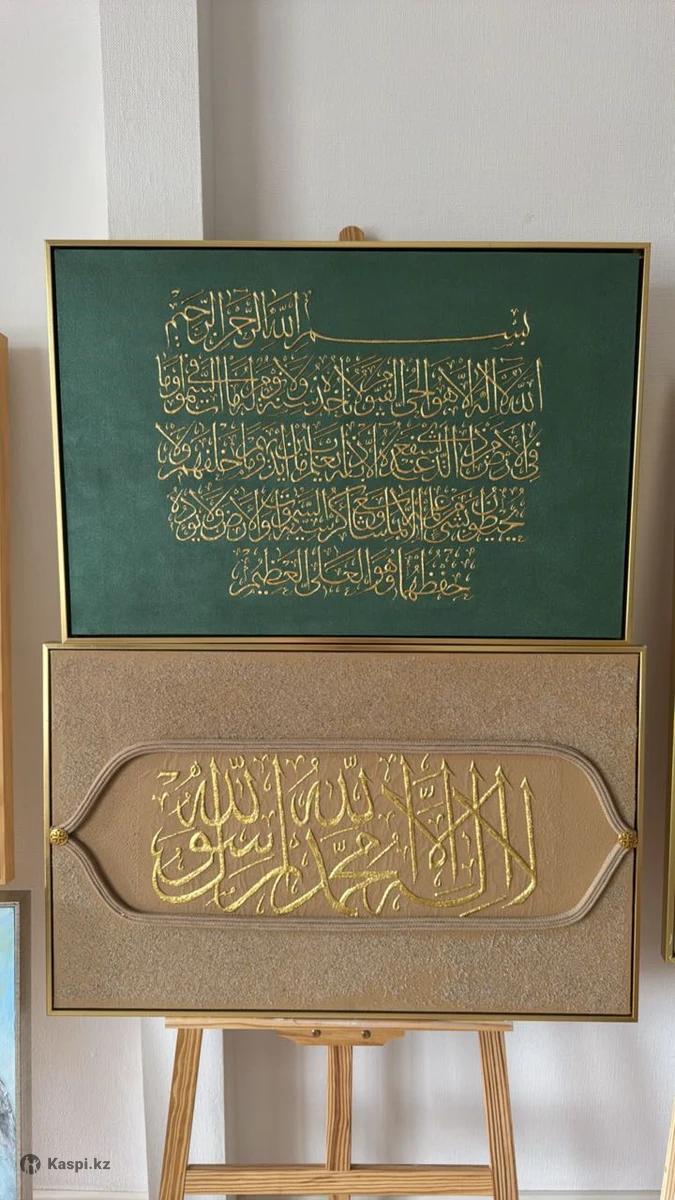 بسم الله الرحمن الرحيم
الله لا اله الا هو الحي القيوم لا تأخذه سنة ولا نوم له ما في السموات وما
في الارض من ذا الذي يشفع عنده الا باذنه يعلم ما بين ايديهم وما خلفهم ولا
يحيطون بشيء من علمه الا بما شاء وسع كرسيه السموات والارض ولا يؤده
حفظهما وهو العلي العظيم
لا اله الا الله محمد رسول الله
Kaspi.kz